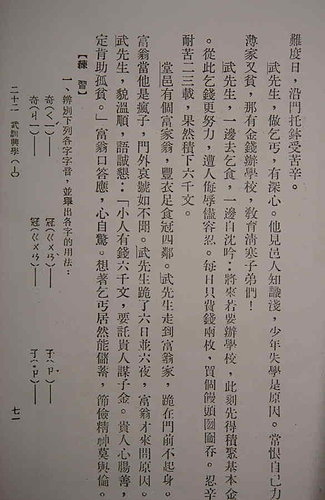 難度日，沿門托鉢受苦辛。
武先生，做乞丐，有深心。他見邑人知識淺，少年失學是原因。常恨自己力
薄家又貧，那有金錢辦學校，敎育淸寒子弟們！
武先生，一邊去乞食，一邊自沈吟：將來若要辦學校，此刻先得積聚基本金
。從此乞錢更努力，遭人侮辱儘容忍。每日只費錢兩枚，買個饅頭囫圇吞。忍辛
耐苦二三載，果然積下六千文。
堂邑有個富家翁，豐衣足食冠四鄰。武先生走到富翁家，跪在門前不起身。
富翁當他是瘋子，門外哀號如不聞。武先生跪了六日並六夜，富翁才來問原因。
武先生，貌溫順，語誠懇：「小人有錢六千文，要託貴人謀子金。貴人心腸善，
定肯助孤貧。」富翁口答應，心自驚。想著乞丐居然能儲蓄，節儉精神莫與倫。
【練習】
一、辨別下列各字字音，並舉出各字的用法：
奇（ㄑㄧˊ）—— 冠（ㄍㄨㄢ）—— 子（ㄗˇ）——
奇（ㄐㄧ）—— 冠（ㄍㄨㄢˋ）—— 子（˙ㄗ）——
二十二 武訓興學（上） 七一